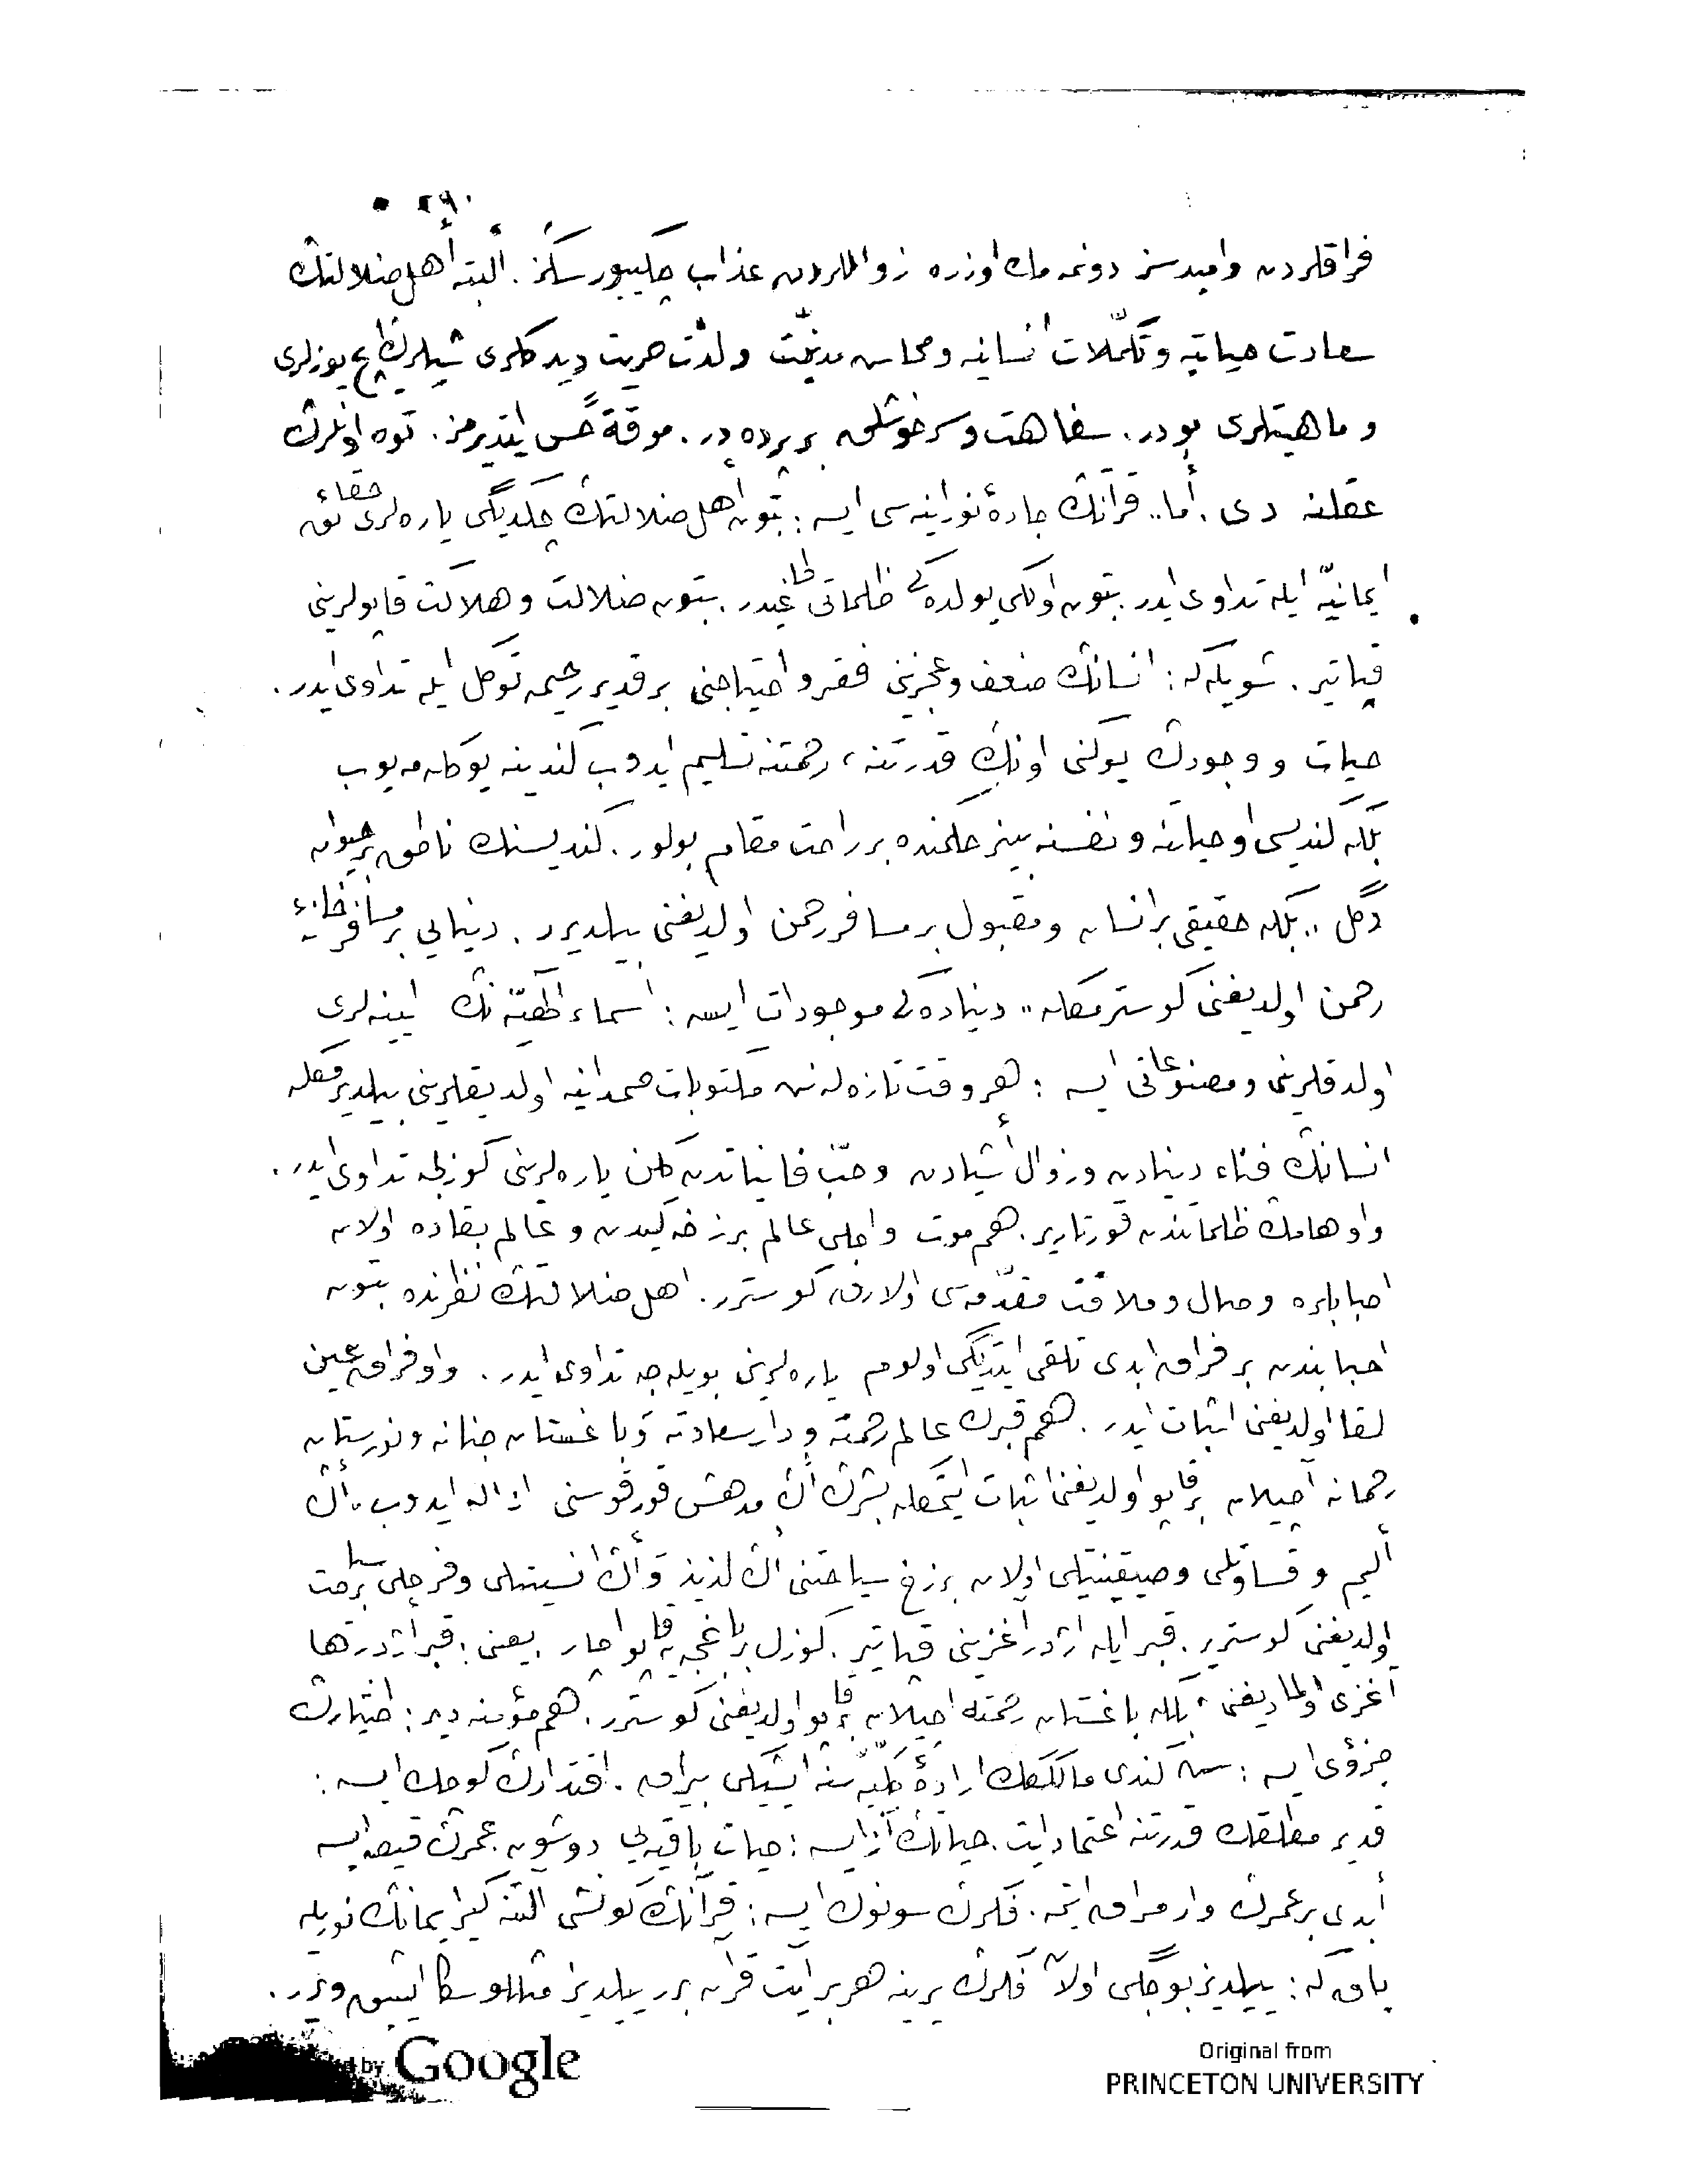 ٢٩٠
فراقلردن واميدسز دونمه مك اوزره زواللردن عذاب چكييورسكز. البته أهل ضلالتڭ
سعادت حياتيه وتكمّلات انسانيه ومحاسن مدنيّت ولذّت حريت ديدكلرى شيلرڭ ايچ يوزلرى
و ماهيتلرى بودر. سفاهت وسرخوشلق بر پرده در. موقةً حس ايتديرمز. توه اونلرڭ
عقلنه دى. أما.. قرآنڭ جادۀ نورانيه سى ايسه: بتون اهل ضلالتڭ چكديگى ياره لرى حقائق
ايمانيّه ايله تداوى ايدر. بتون اولكى يولده كى ظلماتى طاغيدر. بتون ضلالت وهلاكت قاپولرينى
قپاتير. شويله كه: انسانڭ ضعف وعجزينى فقر و احتياجنى بر قدير رحيمه توكل ايله تداوى ايدر.
حيات و وجودڭ يوكنى اونڭ قدرتنه، رحمتنه تسليم ايدوب كندينه يوكله مه يوب
بلكه كنديسى او حياتنه و نفسنه بينر حكمنده بر راحت مقام بولور. كنديسنڭ ناطق بر حيوان
دگل.. بلكه حقيقى بر انسان و مقبول بر مسافر رحمن اولديغنى بيلديرر. دنيايى بر مسافرخانۀ
رحمن اولديغنى كوسترمكله.. دنياده كى موجودات ايسه: اسماء الٰهيّه نڭ آيينه لرى
اولدقلرينى و مصنوعاتى ايسه: هر وقت تازه لنن مكتوبات صمدانيه اولديقلرينى بيلديرمكله
انسانڭ فناء دنيادن و زوال أشيادن و حبّ فانياتدن كلن ياره لرينى كوزلجه تداوى ايدر.
و اوهامڭ ظلماتندن قورتارير. هم موت و اجلى عالم برزخه كيدن و عالم بقاده اولان
احبابلره وصال و ملاقت مقدّمه سى اولارق كوسترر. اهل ضلالتڭ نظرنده بتون
احبابندن بر فراق ابدى تلقى ايتديگى اولوم ياره لرينى بويله جه تداوى ايدر. و او فراق عين
لقا اولديغنى اثبات ايدر. هم قبرڭ عالم رحمته و دار سعادته و باغستان جنانه و نورستان
رحمانه آچيلان بر قاپو اولديغنى اثبات ايتمكله بشرڭ أڭ مدهش قورقوسنى ازاله ايدوب. أڭ
أليم و قساوتلى و صيقينتيلى اولان برزخ سياحتنى أڭ لذيذ و أڭ انسيتلى و فرحلى بر سياحت
اولديغنى كوسترير. قبر ايله اژدر آغزينى قپاتير. كوزل بر باغچه يه قاپو آچار. يعنى: قبر اژدرها
آغزى اولماديغنى، بلكه باغستان رحمته آچيلان بر قاپو اولديغنى كوسترر. هم مؤمنه دير: اختيارڭ
جزؤى ايسه: سن كندى مالكڭڭ ارادۀ كلّيّه سنه ايشيڭى بيراق. اقتدارڭ كوچك ايسه:
قدير مطلقڭ قدرتنه اعتماد ايت. حياتڭ آز ايسه: حيات باقيه يى دوشون. عمرڭ قيصه ايسه
أبدى بر عمرڭ وار مراق ايتمه. فكرڭ سونوك ايسه: قرآنڭ كونشى آلتنه گير ايمانڭ نوريله
باق كه: ييلديز بوجگى اولان فكرڭ يرينه هر بر آيت قرآن برر ييلديز مثللو سڭا ايشيق ويرر.
Google
Original from
PRINCETON UNIVERSITY